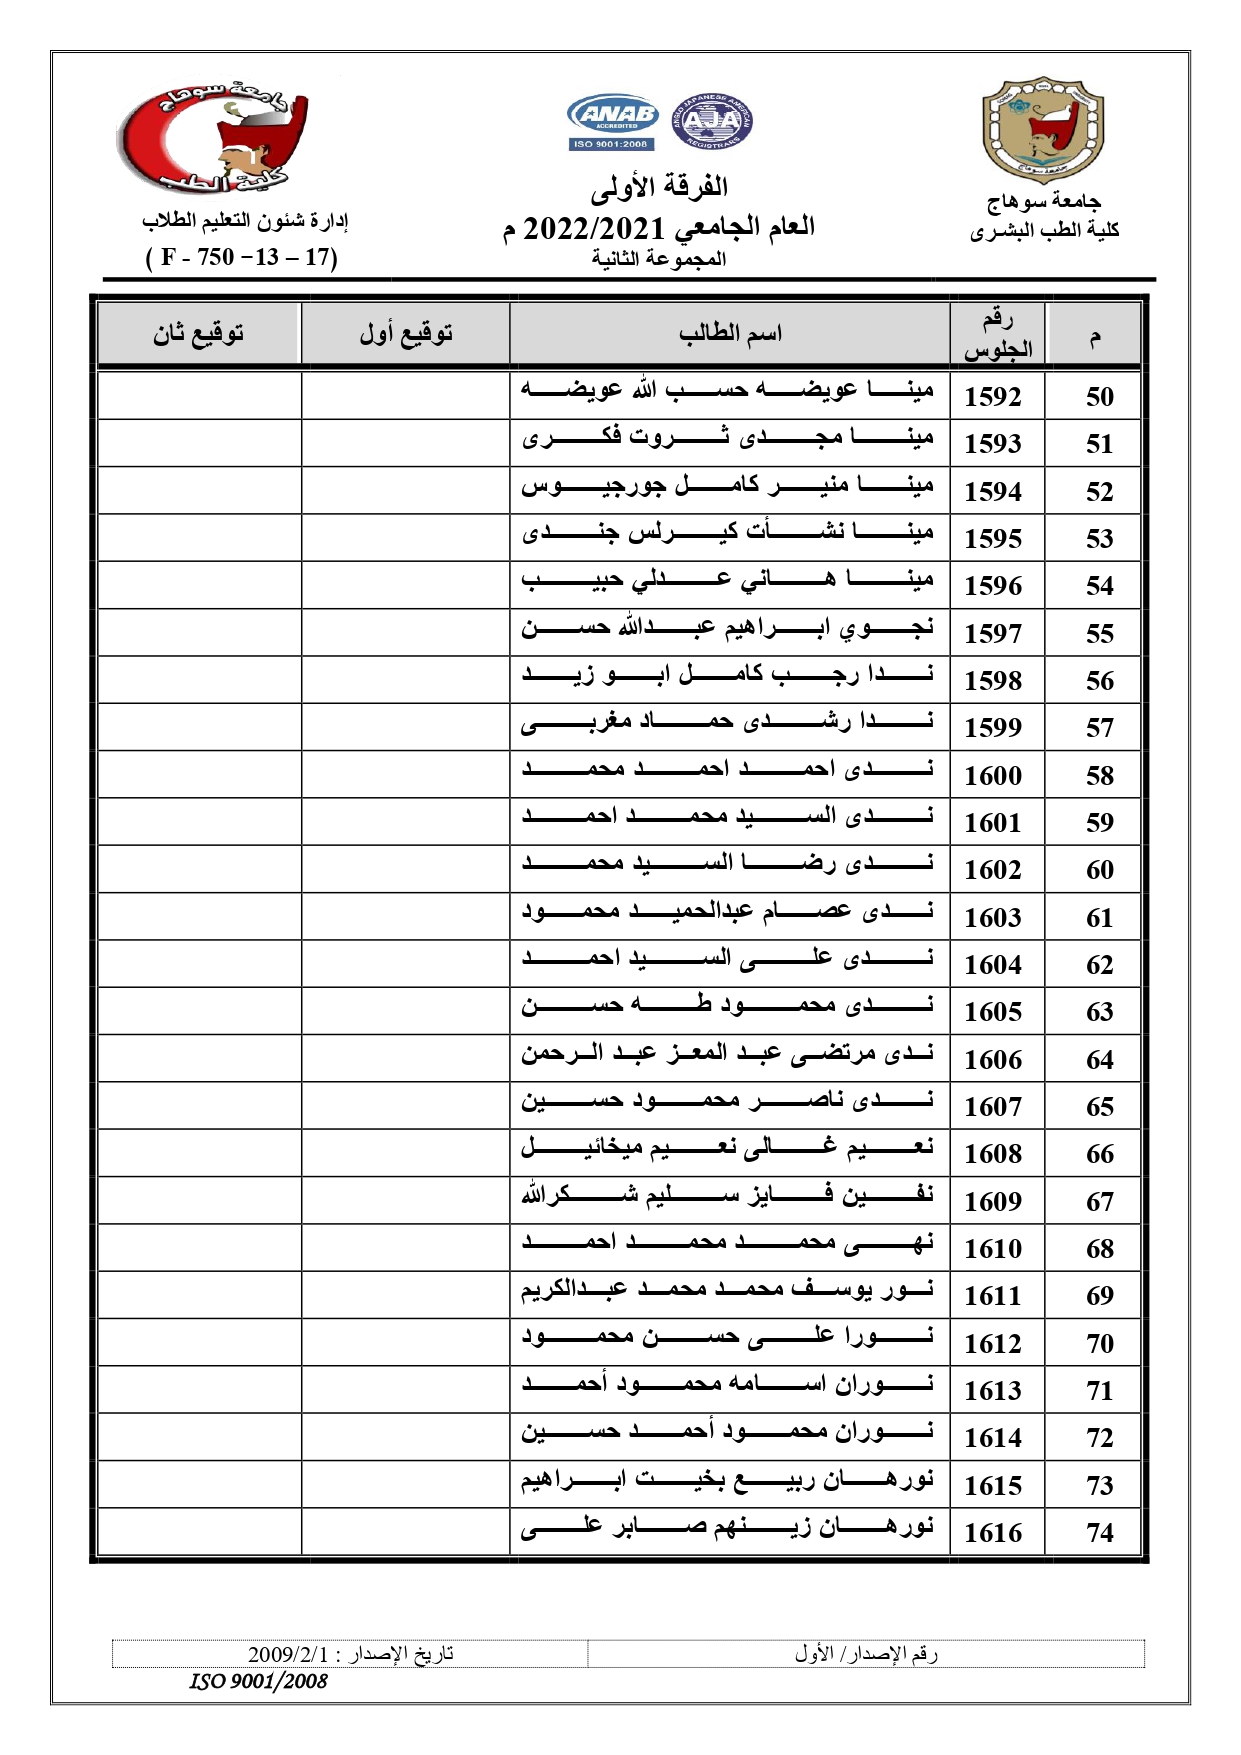 جامعة سوهاج
كلية الطب البشرى
جامعة سوهاج
ANAB
ACCREDITED
ISO 9001:2008
ANGLO JAPANESE AMERICAN
AJA
REGISTRARS
الفرقة الأولى
العام الجامعي 2022/2021 م
المجموعة الثانية
جامعة سوهاج
كلية الطب
إدارة شئون التعليم الطلاب
( F - 750 –13 – 17)
م رقم الجلوس اسم الطالب توقيع أول توقيع ثان
50 1592 مينا عويضه حسب الله عويضه
51 1593 مينا مجدى ثروت فكرى
52 1594 مينا منير كامل جورجيوس
53 1595 مينا نشأت كيرلس جندى
54 1596 مينا هاني عدلي حبيب
55 1597 نجوي ابراهيم عبدالله حسن
56 1598 ندا رجب كامل ابو زيد
57 1599 ندا رشدى حماد مغربى
58 1600 ندى احمد احمد محمد
59 1601 ندى السيد محمد احمد
60 1602 ندى رضا السيد محمد
61 1603 ندى عصام عبدالحميد محمود
62 1604 ندى على السيد احمد
63 1605 ندى محمود طه حسن
64 1606 ندى مرتضى عبد المعز عبد الرحمن
65 1607 ندى ناصر محمود حسين
66 1608 نعيم غالى نعيم ميخائيل
67 1609 نفين فايز سليم شكرالله
68 1610 نهى محمد محمد احمد
69 1611 نور يوسف محمد محمد عبدالكريم
70 1612 نورا على حسن محمود
71 1613 نوران اسامه محمود أحمد
72 1614 نوران محمود أحمد حسين
73 1615 نورهان ربيع بخيت ابراهيم
74 1616 نورهان زينهم صابر على
رقم الإصدار/ الأول تاريخ الإصدار : 2009/2/1
ISO 9001/2008